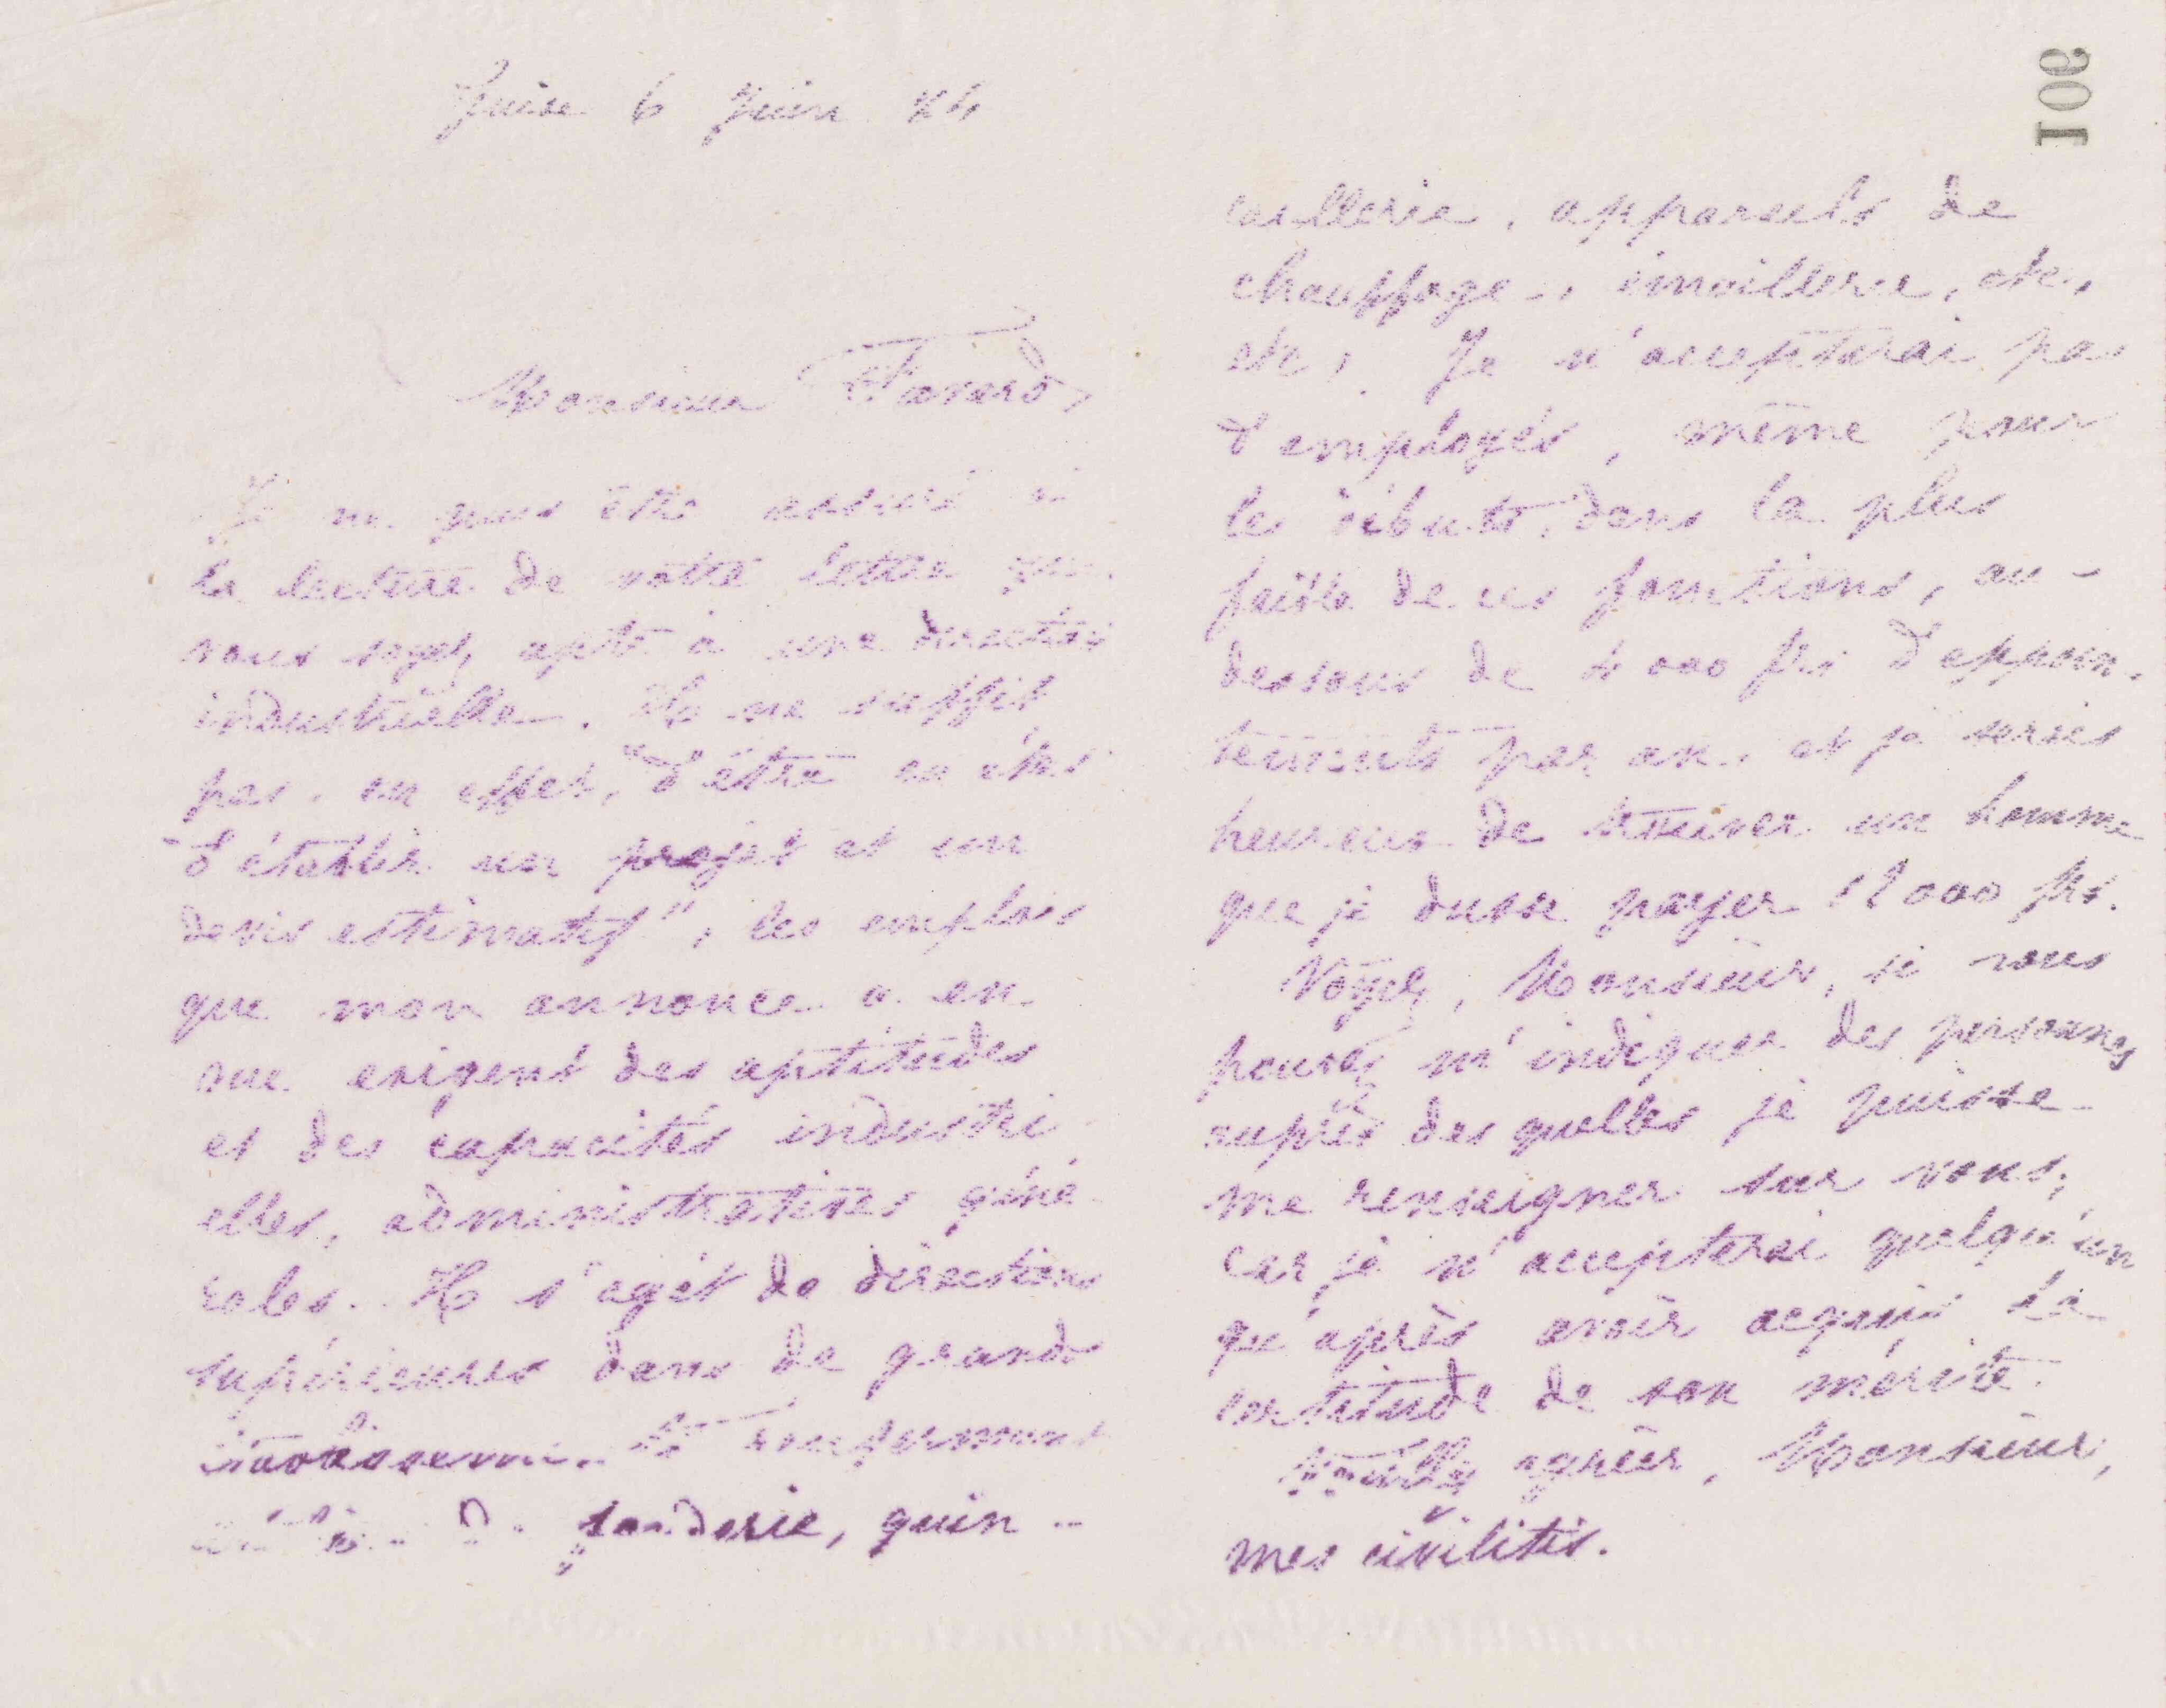 Guise 6 Juin 84
Monsieur Favard,
Je ne puis être assuré à
la lecture de votre lettre que
vous soyez apte à une direction
industrielle. Il ne suffit
pas, en effet, "d'être en état
d'établir un projet et un
devis estimatif", les emplois
que mon annonce a en
vue exigent des aptitudes
et des capacités industri
elles, administratives géné
rales. Il s'agit de directions
supérieures dans de grands
établissements renfermant
fonderie, quin-
caillerie, appareils de
chauffage, émaillerie, etc,
etc, Je n'accepterai pas
d'employés, même pour
les débuts, dans la plus
faible de ces fonctions, au-
dessous de 4000 frs d'appoin-
tements par an, et je serais
heureux de trouver un homme
que je dusse payer 12000 frs.
Voyez, Monsieur, si vous
pouvez m'indiquer des personnes
auprès des quelles je puisse
me renseigner sur vous,
car je n'accepterai quelqu'un
qu'après avoir acquis la
certitude de son mérite.
Veuillez agréer, Monsieur,
mes civilités.
106